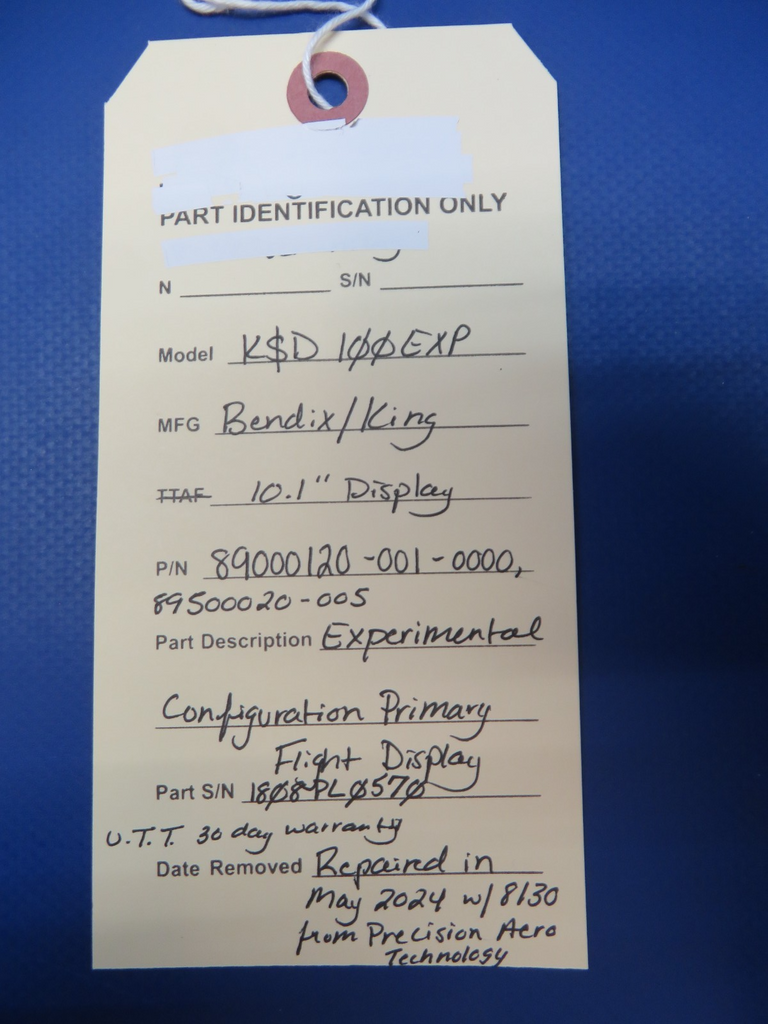 PART IDENTIFICATION ONLY
N S/N
Model K$D 100 EXP
MFG Bendix/King
TTAF 10.1" Display
P/N 89000120-001-0000,
89500020-005
Part Description Experimental
Configuration Primary
Flight Display
Part S/N 1808-PL0570
U.T.T. 30 day warranty
Date Removed Repaired in
May 2024 w/ 8130
from Precision Aero
Technology